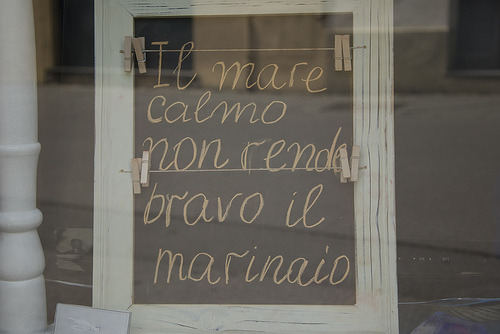 Il mare
calmo
non rende
bravo il
marinaio